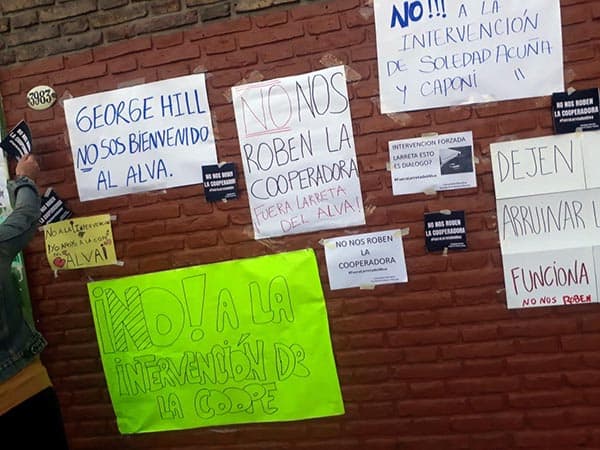 3983
GEORGE HILL
NO SOS BIENVENIDO
AL ALVA.
NO NOS
ROBEN LA
COOPERADORA
FUERA LARRETA
DEL ALVA!
NO!!! A LA
INTERVENCIÓN
DE SOLEDAD ACUÑA
Y CAPONI "
NO NOS ROBEN
LA COOPERADORA
INTERVENCIÓN FORZADA
LARRETA ESTO
ES DIÁLOGO?
NO NOS ROBEN
LA COOPERADORA
NO NOS ROBEN
LA COOPERADORA
NO NOS ROBEN LA
COOPERADORA
DEJEN
ARRUINAR L
FUNCIONA
NO NOS ROBEN
NO A LA INTERVENCIÓN
YO APOYO A LA COOPE
ALVA!
¡NO! A LA
INTERVENCIÓN DE
LA COOPE